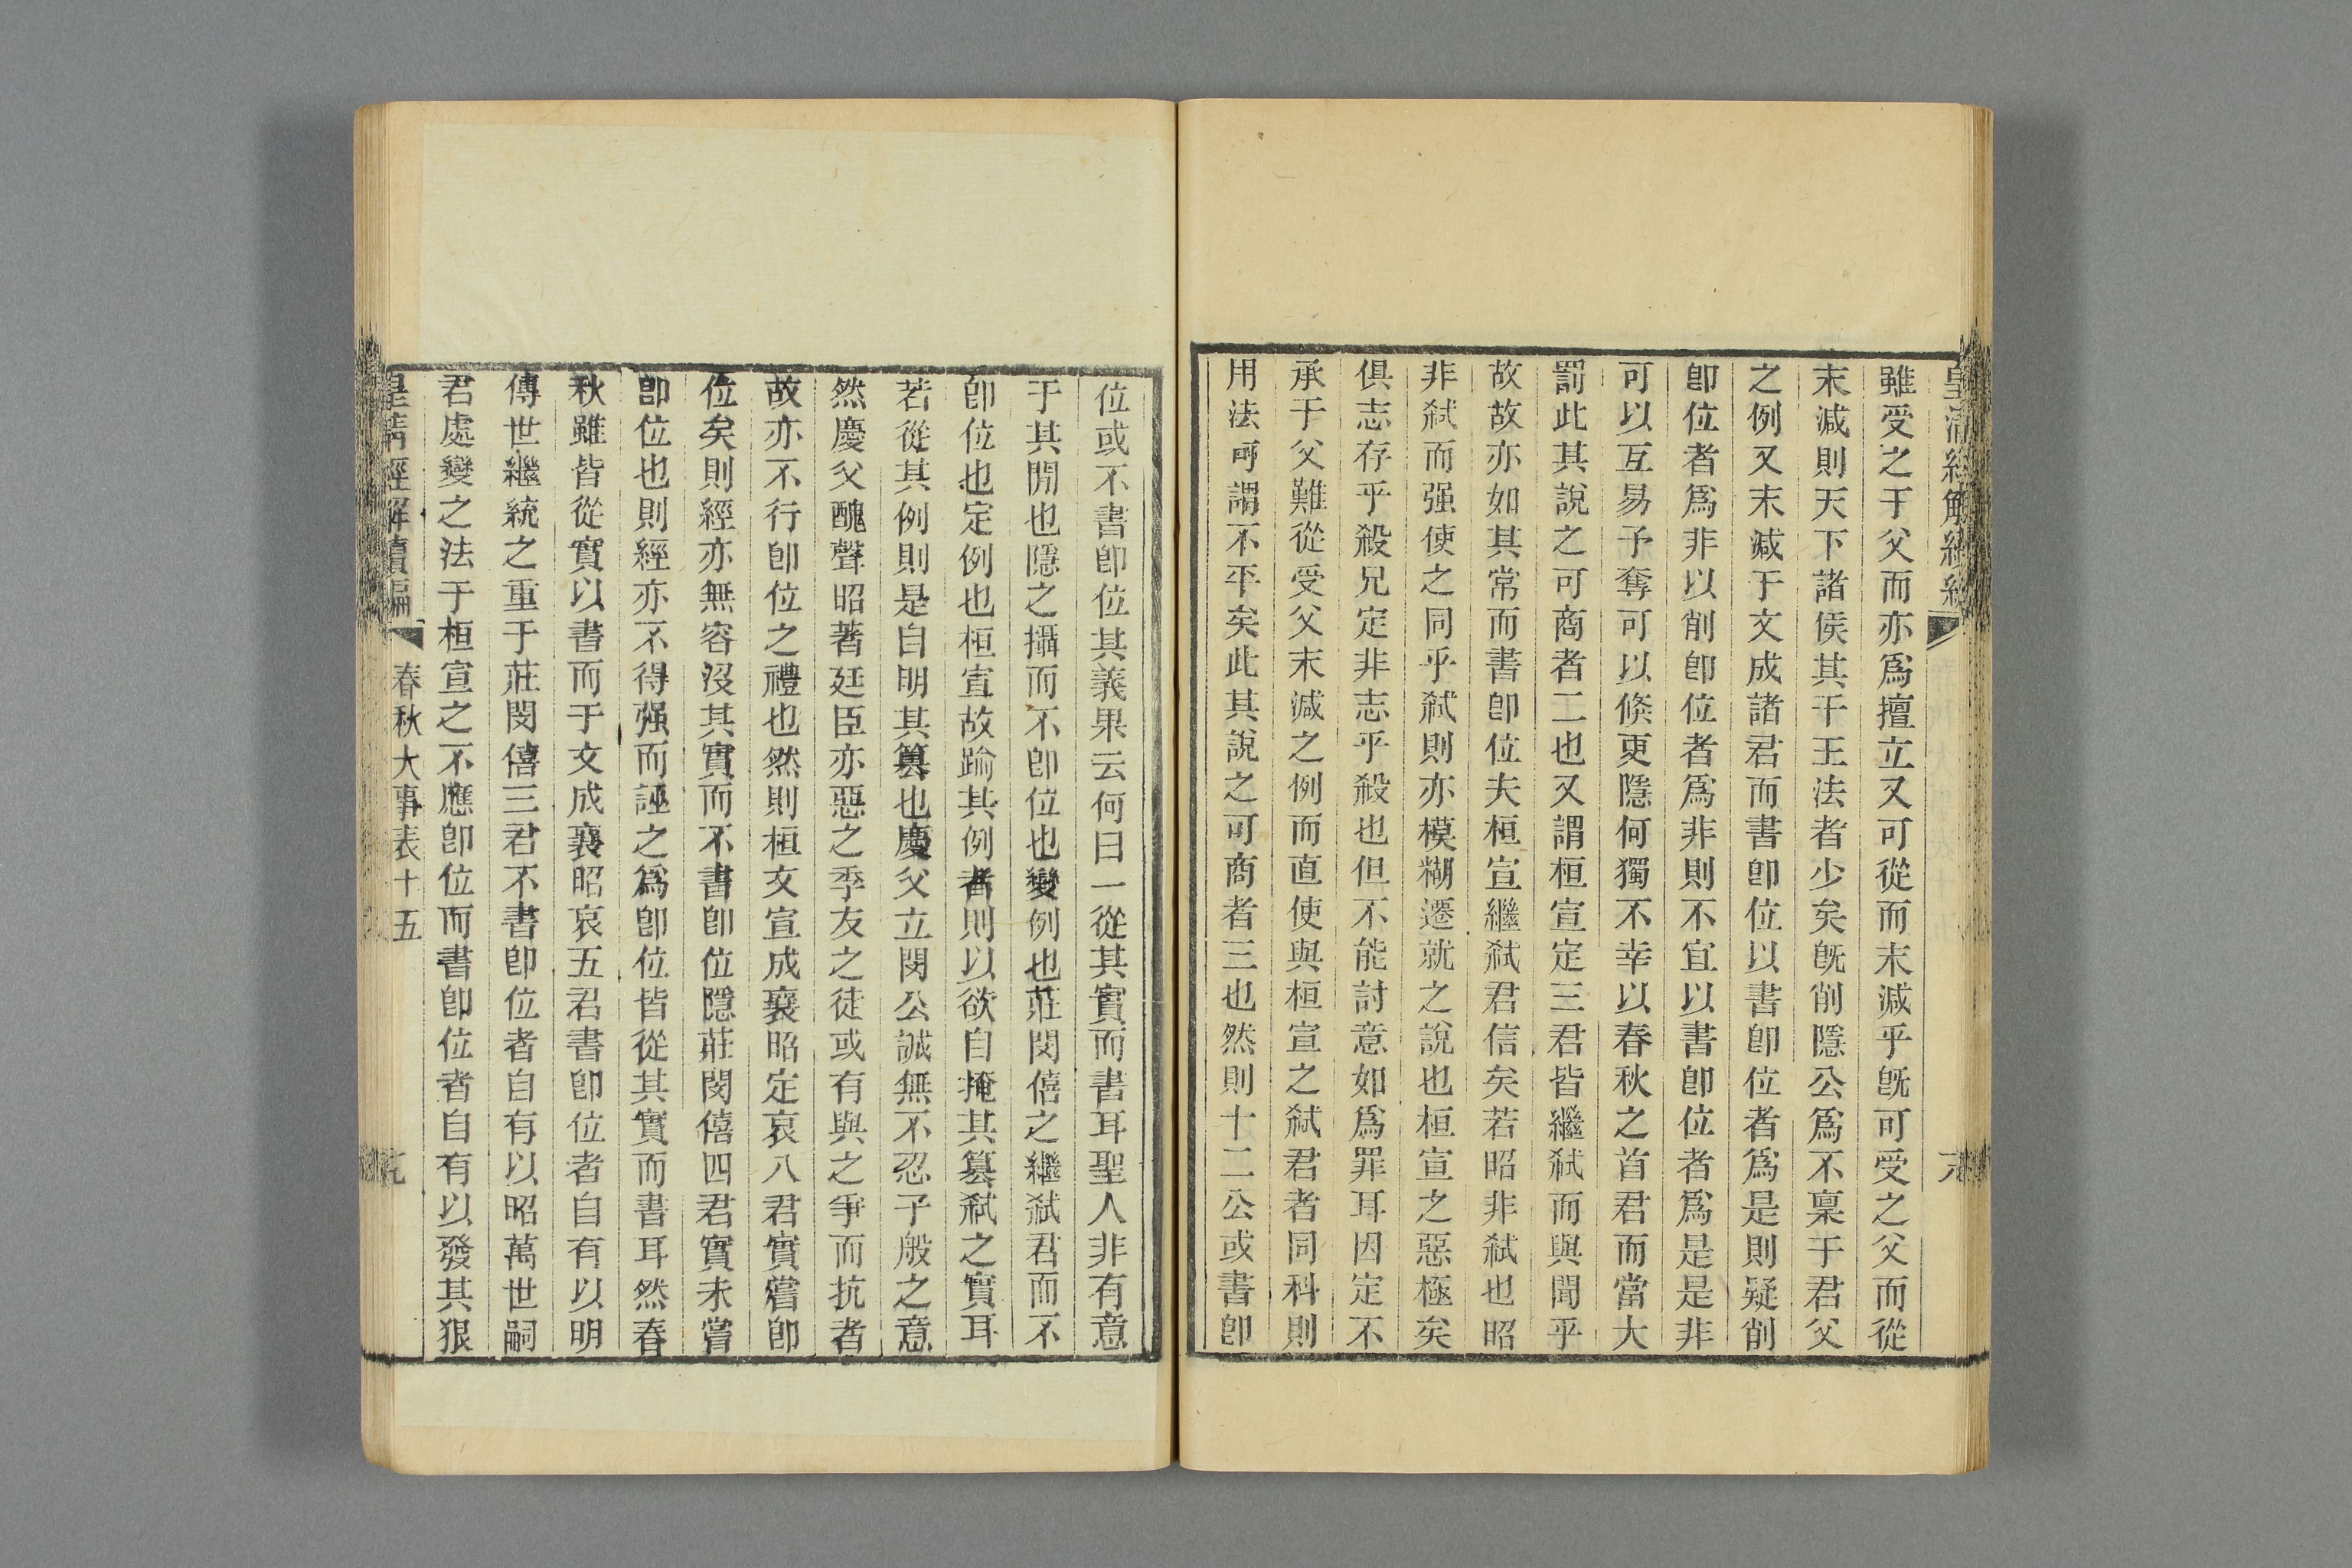 雖受之于父而亦爲擅立又可從而末減乎旣可受之父而從
末減則天下諸侯其干王法者少矣旣削隱公爲不稟于君父
之例又末減于文成諸君而書卽位以書卽位者爲是則疑削
卽位者爲非以削卽位者爲非則不宜以書卽位者爲是是非
可以互易予奪可以倐更隱何獨不幸以春秋之首君而當大
罰此其說之可商者二也又謂桓宣定三君皆繼弒而與聞乎
故故亦如其常而書卽位夫桓宣繼弒君信矣若昭非弒也昭
非弒而强使之同乎弒則亦模糊遷就之說也桓宣之惡極矣
俱志存乎殺兄定非志乎殺也但不能討意如爲罪耳因定不
承于父難從受父末減之例而直使與桓宣之弒君者同科則
用法可謂不平矣此其說之可商者三也然則十二公或書卽
位或不書卽位其義果云何曰一從其實而書耳聖人非有意
于其閒也隱之攝而不卽位也變例也莊閔僖之繼弒君而不
卽位也定例也桓宣故踰其例者則以欲自掩其篡弒之實耳
若從其例則是自明其篡也慶父立閔公誠無不忍子般之意
然慶父醜聲昭著廷臣亦惡之季友之徒或有與之爭而抗者
故亦不行卽位之禮也然則桓文宣成襄昭定哀八君實嘗卽
位矣則經亦無容沒其實而不書卽位隱莊閔僖四君實未嘗
卽位也則經亦不得强而誣之爲卽位皆從其實而書耳然春
秋雖皆從實以書而于文成襄昭哀五君書卽位者自有以明
傳世繼統之重于莊閔僖三君不書卽位者自有以昭萬世嗣
君處變之法于桓宣之不應卽位而書卽位者自有以發其狠
皇淸經解續編 春秋大事表十五